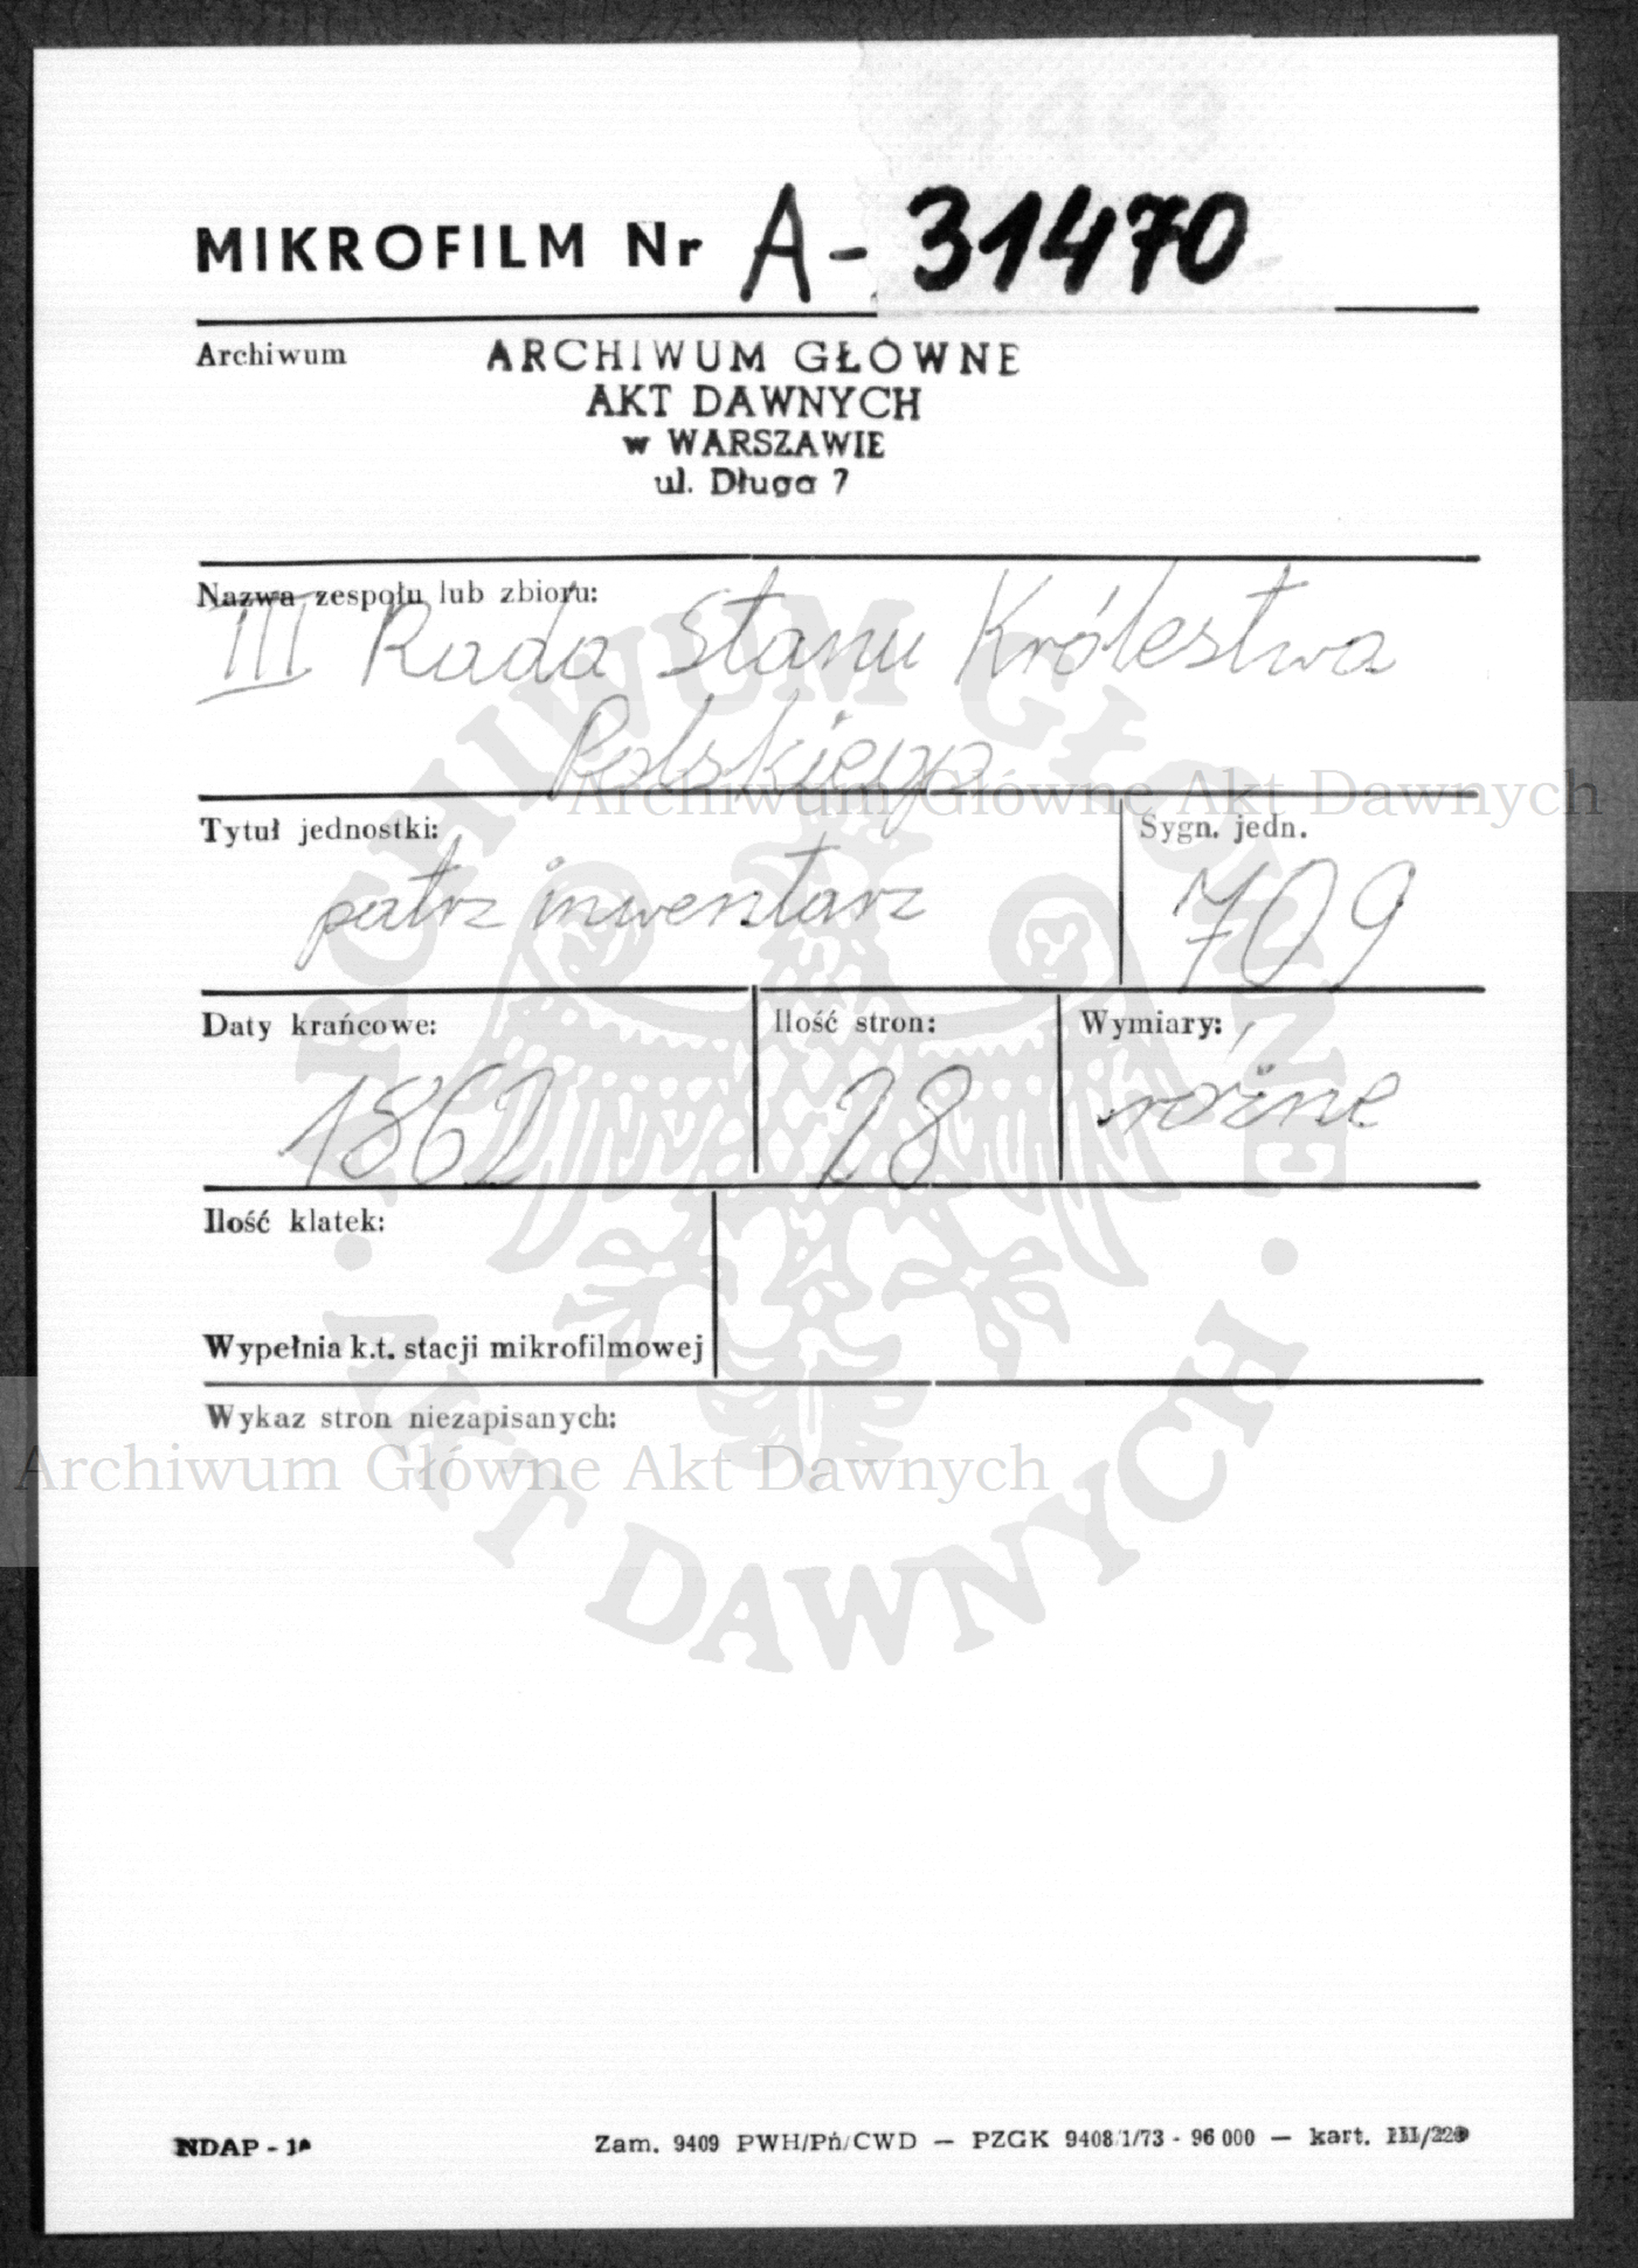 MIKROFILM Nr A - 31470
Archiwum
ARCHIWUM GŁÓWNE
AKT DAWNYCH
w WARSZAWIE
ul. Długa 7
Nazwa zespołu lub zbioru:
III Rada Stanu Królestwa
Polskiego
Archiwum Główne Akt Dawnych
Tytuł jednostki:
patrz inwentarz
Sygn. jedn.
709
Daty krańcowe:
1862
Ilość stron:
28
Wymiary:
różne
Ilość klatek:
Wypełnia k.t. stacji mikrofilmowej
Wykaz stron niezapisanych:
Archiwum Główne Akt Dawnych
ARCHIWUM GŁÓWNE • AKT DAWNYCH •
NDAP - 1
Zam. 9409 PWH/Pń/CWD — PZGK 9408/1/73 - 96 000 — kart. III/220